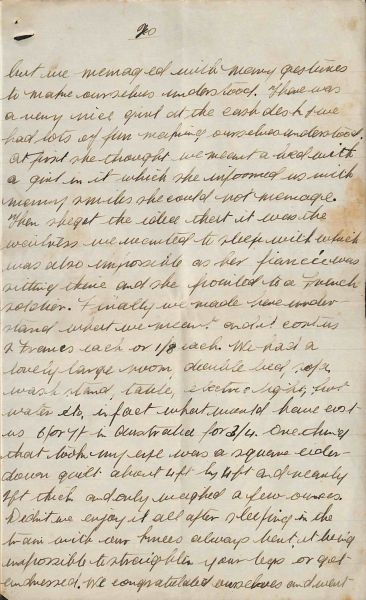 20
but we menaged with many gestures
to make ourselves understood. There was
a very nice girl at the cash desk & we
had lots of fun making ourselves understood.
at first she thought we meant a bed with
a girl in it which she informed us with
many smiles she could not menage.
Then she got the idea that it was the
waitress we wanted to sleep with which
was also impossible as her fiancée was
sitting there and she pointed to a French
soldier. Finally we made her under
stand what we meant and it cost us
2 Francs each or 1/8 each. We had a
lovely large room, double bed, sofa,
wash stand, table, electric light, hot
water etc, in fact what would have cost
us 6/ or 7/ in Australia for 3/4. One thing
that took my eye was a square eider-
down quilt about 4ft by 4ft and nearly
2ft thick and only weighed a few ounces.
Didn't we enjoy it all after sleeping in the
train with our knees always bent, it being
impossible to straighten your legs or get
undressed. We congratulated ourselves and went